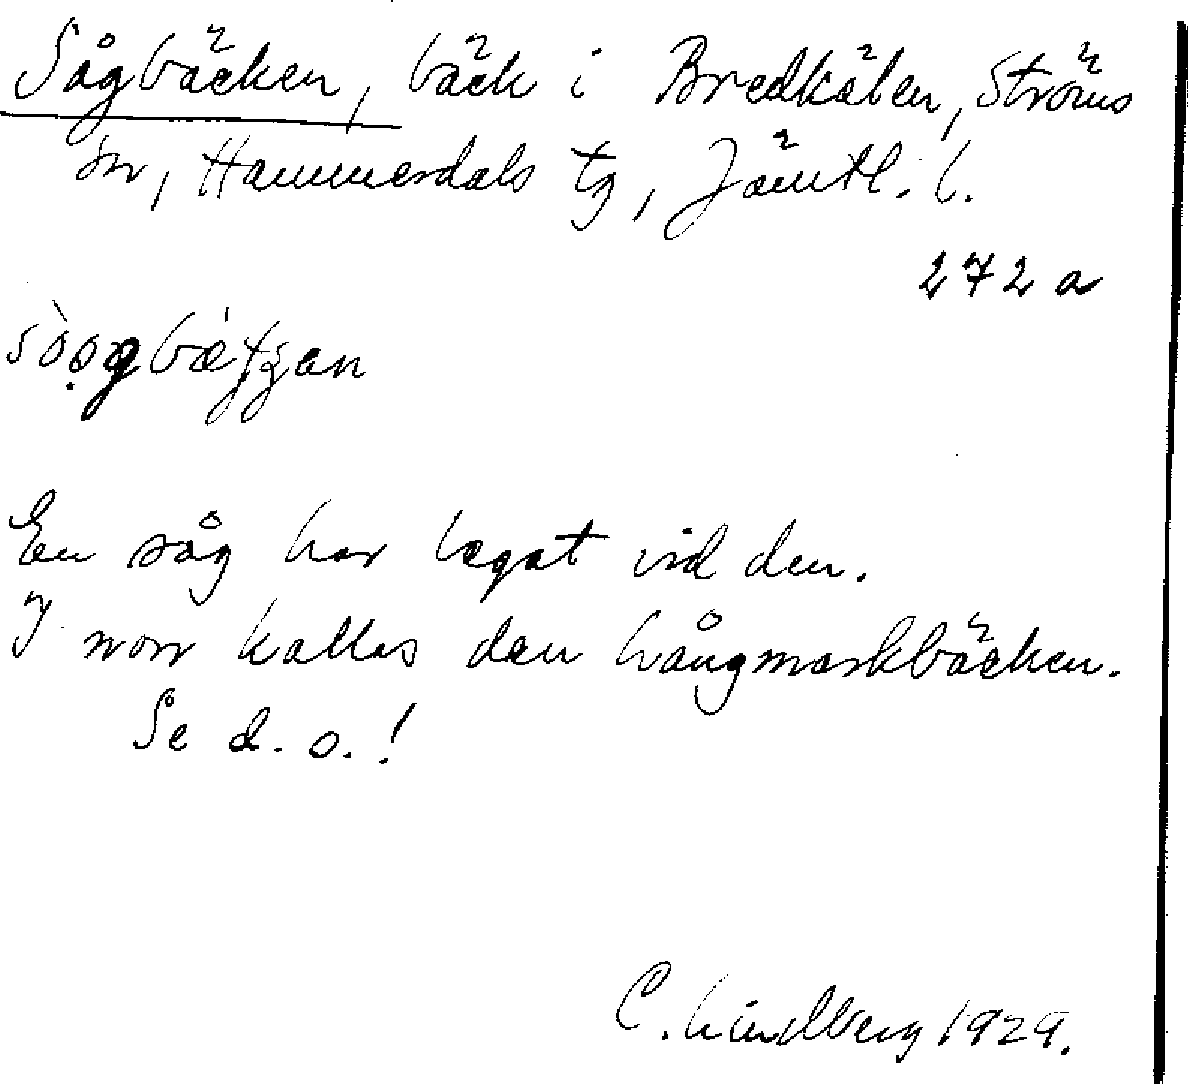 Sågbäcken, bäck i Bredkälen, Ströms
sn, Hammerdals tg, Jämtl. l.
272 a
En såg har legat vid den.
I norr kallas den Långmarkbäcken.
Se d. o.!
C. Lindberg 1929.